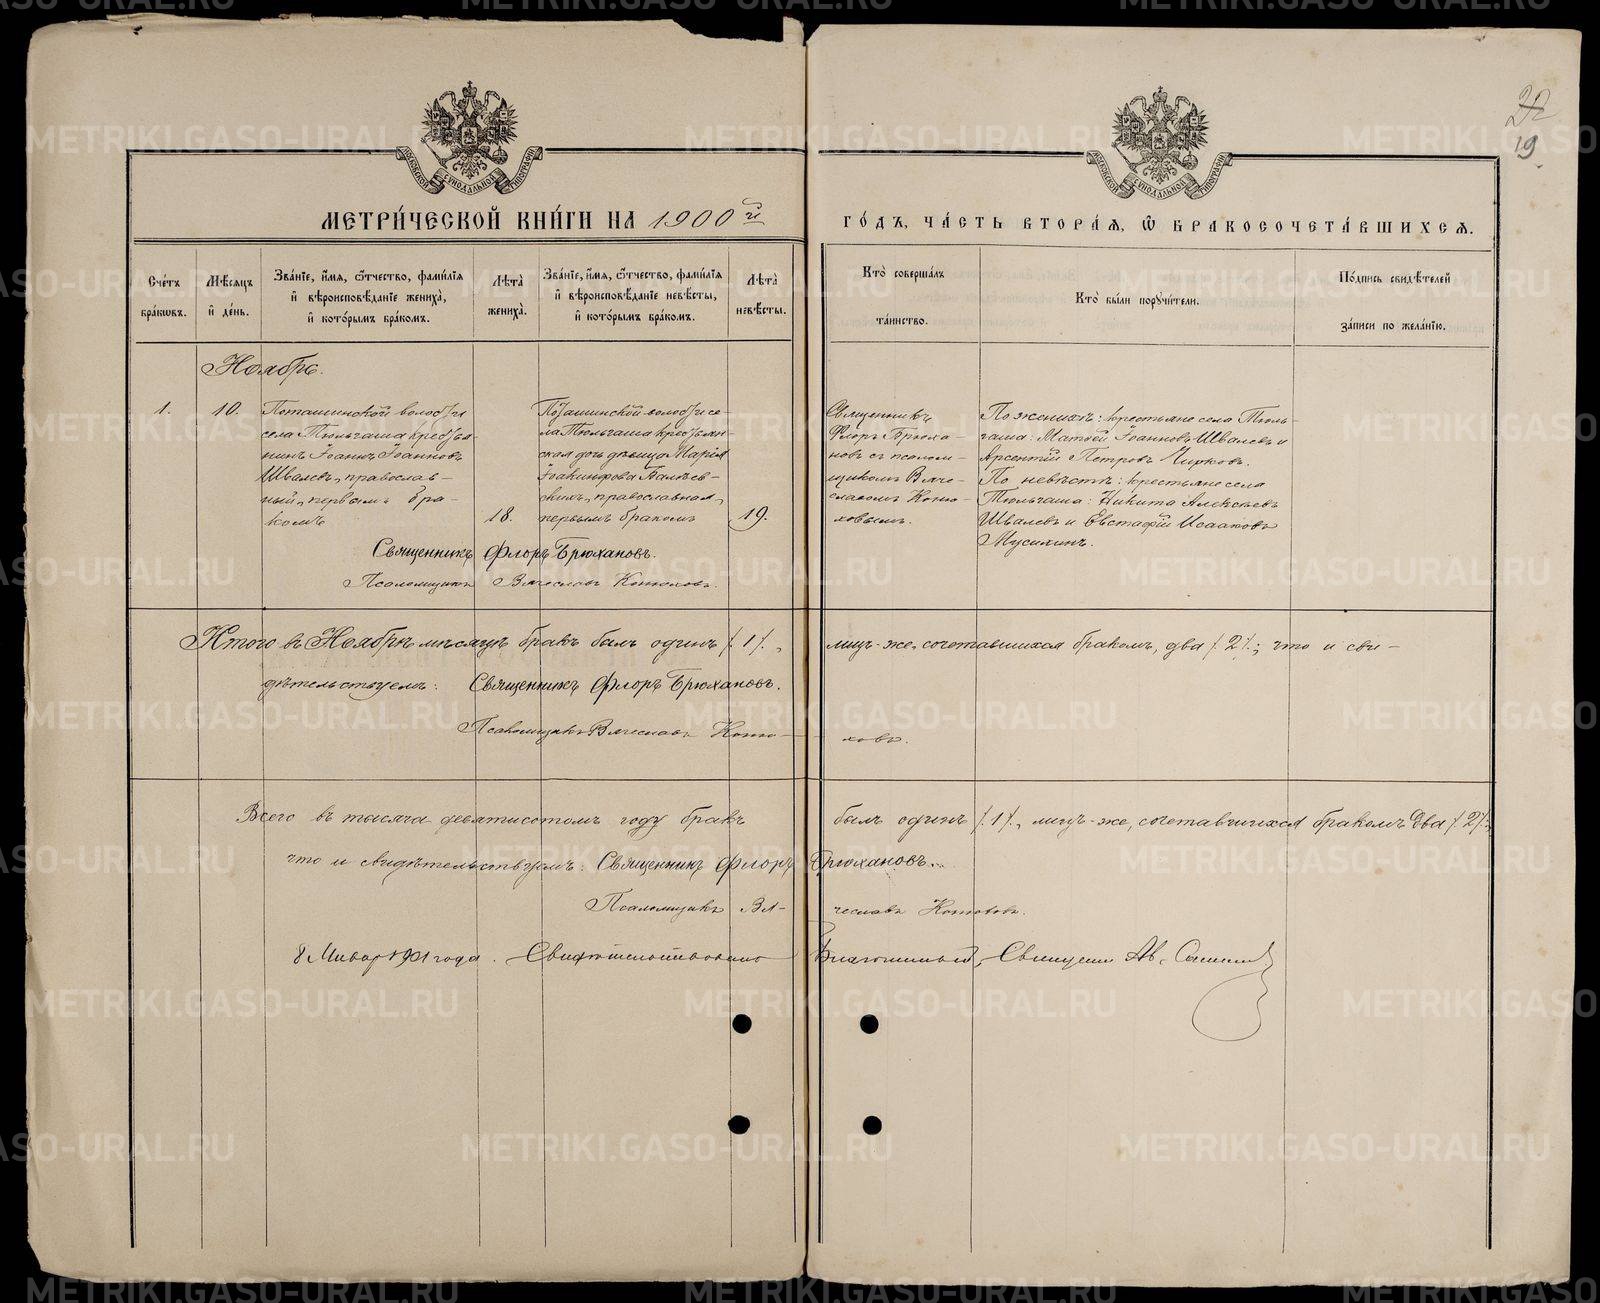 МЕТРИ́ЧЕСКОЙ КНИ́ГИ НА 1900й
ГО́ДЪ, ЧА́СТЬ ВТОРА́Я, Ѡ БРАКОСОЧЕТА́ВШИХСЯ.
22
19
МОСКОВСКОЙ СѴНОДАЛЬНОЙ ТИПОГРАФІИ
МОСКОВСКОЙ СѴНОДАЛЬНОЙ ТИПОГРАФІИ
Сче́тъ бра́ковъ.
Мѣ́сяцъ и́ де́нь.
Зва́ніе, и́мя, ѻ́тчество, фами́лія и́ вѣроисповѣ́даніе жениха̀, и́ кото́рымъ бра́комъ.
Лѣ́та жениха̀.
Зва́ніе, и́мя, ѻ́тчество, фами́лія и́ вѣроисповѣ́даніе невѣ́сты, и́ кото́рымъ бра́комъ.
Лѣ́та невѣ́сты.
Кто̀ соверша́лъ та́инство.
Кто̀ бы́ли порꙋчи́тели.
По́дпись свидѣ́телей за́писи по жела́нію.
Ноябрь.
1.
10.
Поташинской волости
села Тюльгаша кресть-
нинъ Іоаннъ Іоанновъ
Швалевъ, православ-
ный, первымъ бра-
комъ
18.
Поташинской волости се-
ла Тюльгаша крестьян-
ская дочь дѣвица Марія
Іоакинфова
православная,
первымъ бракомъ
19.
Священникъ
Флоръ Брюха-
новъ съ псалом-
щикомъ Вяче-
славомъ Коню-
ховымъ.
По женихѣ: крестьяне села Тюль-
гаша: Матѳей Іоанновъ Швалевъ и
Арсентій Петровъ Чирковъ.
По невѣстѣ: крестьяне села
Тюльгаша: Никита Алексѣевъ
Швалевъ и Евстафій Исааковъ
Мусихинъ.
Священникъ Флоръ Брюхановъ.
Псаломщикъ Вячеславъ Конюховъ.
Итого въ Ноябрѣ мѣсяцѣ бракъ былъ одинъ /1/, лицъ-же, сочетавшихся бракомъ, два /2/; что и сви-
дѣтельствуемъ: Священникъ Флоръ Брюхановъ.
Псаломщикъ Вячеславъ Коню-ховъ.
Всего въ тысяча девятисотомъ году бракъ былъ одинъ /1/, лицъ-же, сочетавшихся бракомъ два /2/;
что и свидѣтельствуемъ: Священникъ Флоръ Брюхановъ.
Псаломщикъ Вя-чеславъ Конюховъ.
8 Января 1901 года. Свидѣтельствовалъ Благочинный, Священникъ Ав.
METRIKI.GASO-URAL.RU